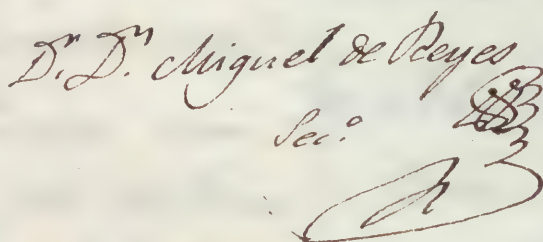 Dʳ. Dⁿ. Miguel de Reyes
Sec.º